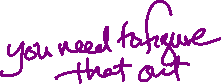 you need to figure
that out